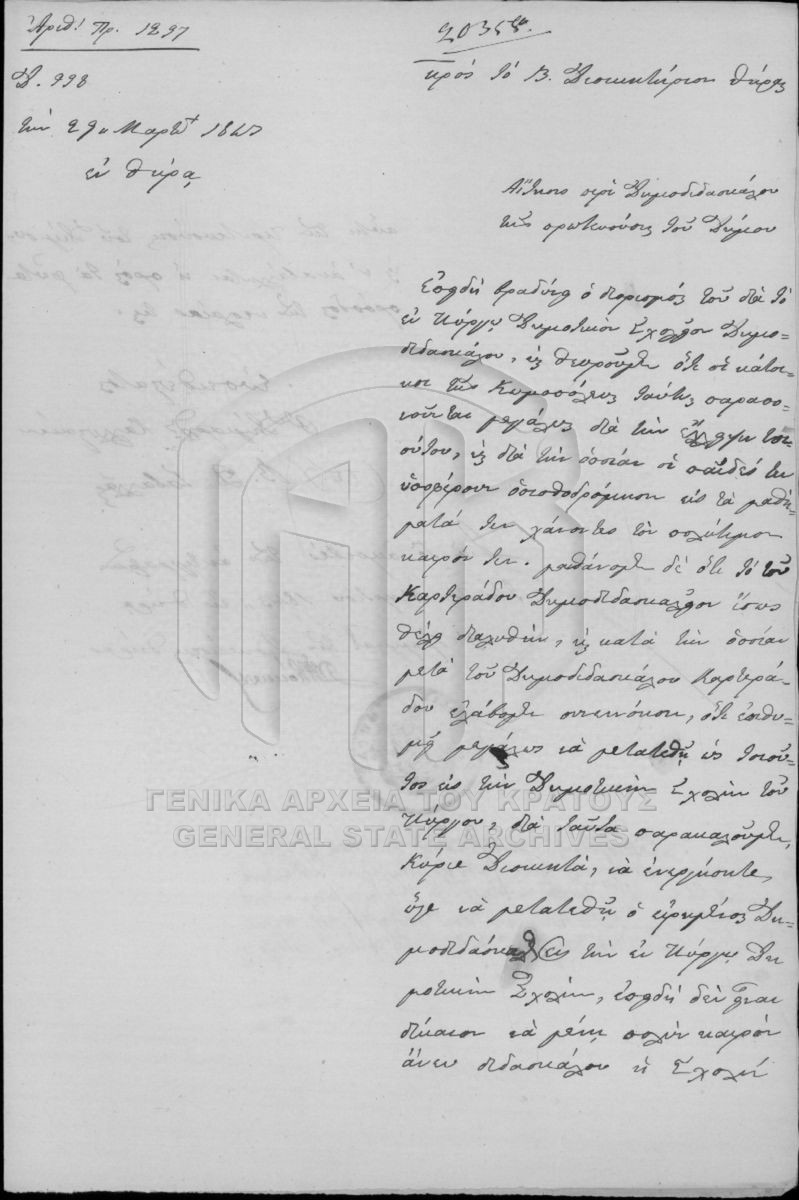 Ἀριθ. Πρ. 1297
Δ. 998
τὴν 29 Μαρτ 184
ἐν Θήρᾳ
2035
πρὸς τὸ Β. Διοικητήριον Θήρας
Αἴτησις περὶ Δημοδιδασκάλου
τῆς πρωτευούσης τοῦ Δήμου
Ἐπειδὴ βραδύνει ὁ διορισμὸς τοῦ διὰ τὸ
ἐν Πύργῳ Δημοτικὸν Σχολεῖον Δημο-
διδασκάλου, καὶ θεωροῦμεν ὅτι οἱ κάτοι-
κοι τῆς Κωμοπόλεως ταύτης παραπο-
νοῦνται μεγάλως διὰ τὴν ἔλλειψιν τοι-
ούτου, καὶ διὰ τὴν ὁποίαν οἱ παῖδές των
ὑποφέρουν ὀπισθοδρόμησιν εἰς τὰ μαθή-
ματά των χάνοντες τὸν πολύτιμον
καιρόν των. μανθάνομεν δὲ ὅτι τὸ τοῦ
Καρτεράδου Δημοδιδασκαλεῖον ἴσως
θέλει διαλυθῆν, καὶ κατὰ τὴν ὁποίαν
μετὰ τοῦ Δημοδιδασκάλου Καρτερά-
δου ἐλάβομεν συνεννόησιν, ὅτι ἐπιθυ-
μεῖ μεγάλως νὰ μετατεθῇ ὡς τοιοῦ-
τος εἰς τὴν Δημοτικὴν Σχολὴν τοῦ
Πύργου, διὰ ταῦτα παρακαλοῦμεν,
Κύριε Διοικητά, νὰ ἐνεργήσητε,
ὥστε νὰ μετατεθῇ ὁ εἰρημένος Δη-
μοδιδάσκαλος εἰς τὴν ἐν Πύργῳ Δη-
μοτικὴν Σχολὴν, ἐπειδὴ δὲν εἶναι
δίκαιον νὰ μένῃ πολὺν καιρὸν
ἄνευ διδασκάλου ἡ Σχολὴ
ΓΕΝΙΚΑ ΑΡΧΕΙΑ ΤΟΥ ΚΡΑΤΟΥΣ
GENERAL STATE ARCHIVES